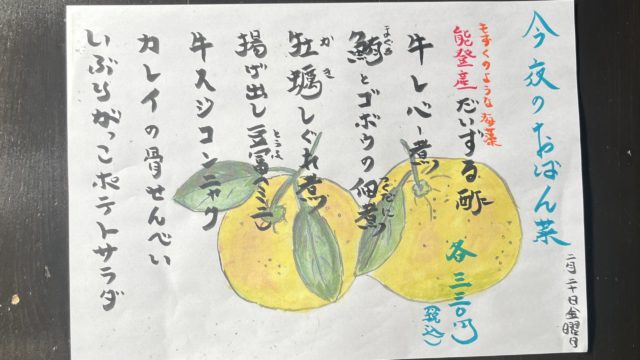 今夜のおばん菜
二月二十日金曜日
もずくのような海藻
能登産だいずる酢
各三三〇円
(税込)
牛レバー煮
まぐろ
鮪とゴボウの佃煮
つくだに
かき
牡蠣しぐれ煮
揚げ出し豆富ミニ
とうふ
牛スジコンニャク
カレイの骨せんべい
いぶりがっこポテトサラダ